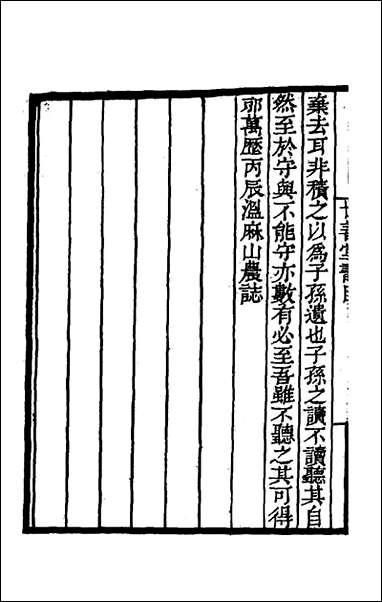 棄去耳非積之以爲子孫遺也子孫之讀不讀聽其自
然至於守與不能守亦數有必至吾雖不聽之其可得
耶萬歷丙辰溫麻山農誌